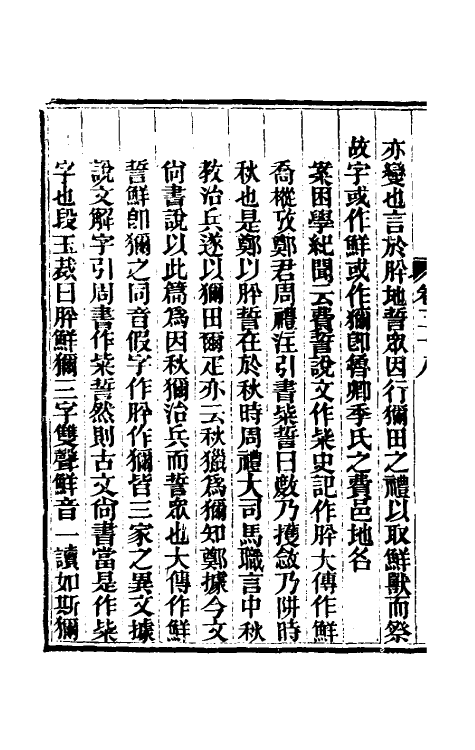 亦變也言於肸地誓眾因行獮田之禮以取鮮獸而祭
故字或作鮮或作獮卽魯卿季氏之費邑地名
案困學紀聞云費誓說文作粊史記作肸大傳作鮮
喬樅攷鄭君周禮注引書粊誓曰敷乃擭斂乃阱時
秋也是鄭以肸誓在於秋時周禮大司馬職言中秋
教治兵遂以獮田爾疋亦云秋獵爲獮知鄭據今文
尙書說以此篇爲因秋獮治兵而誓眾也大傳作鮮
誓鮮卽獮之同音假字作肸作獮皆三家之異文據
說文解字引周書作粊誓然則古文尙書當是作粊
字也段玉裁曰肸鮮獮三字雙聲鮮音一讀如斯獮
卷二十八